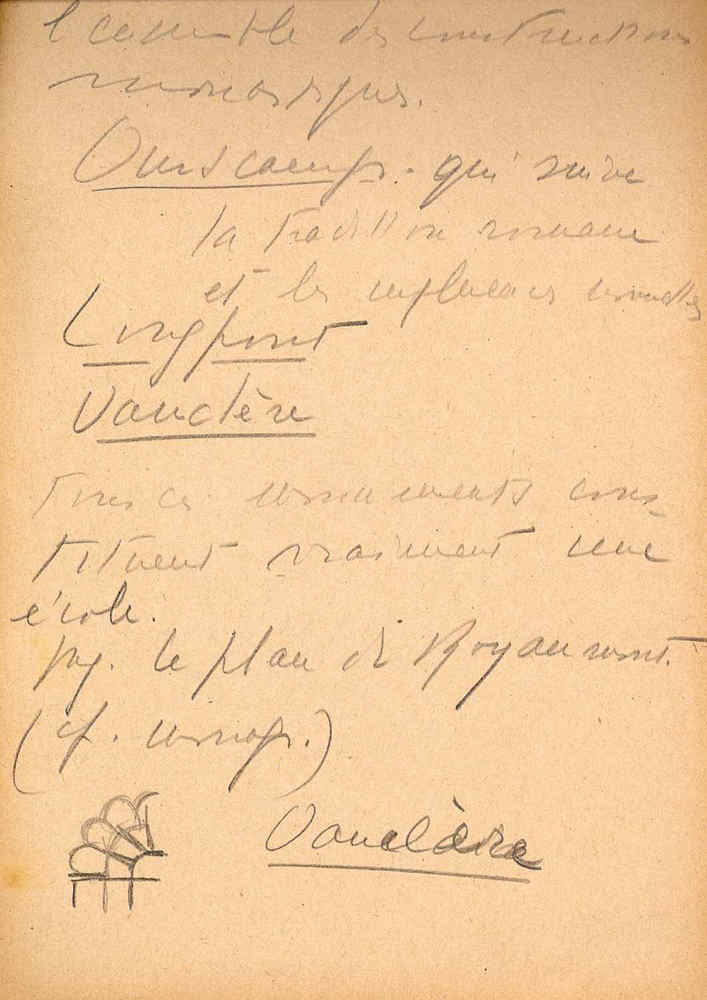 l'ensemble des constructions
monastiques.
Ourscamp - qui suive
la tradition romane
et les influences nouvelles
Longpont
Vauclère
Tous ces monuments cons-
tituent vraiment une
école.
le plan de Royaumont.
(cf. monogr.)
Vauclère